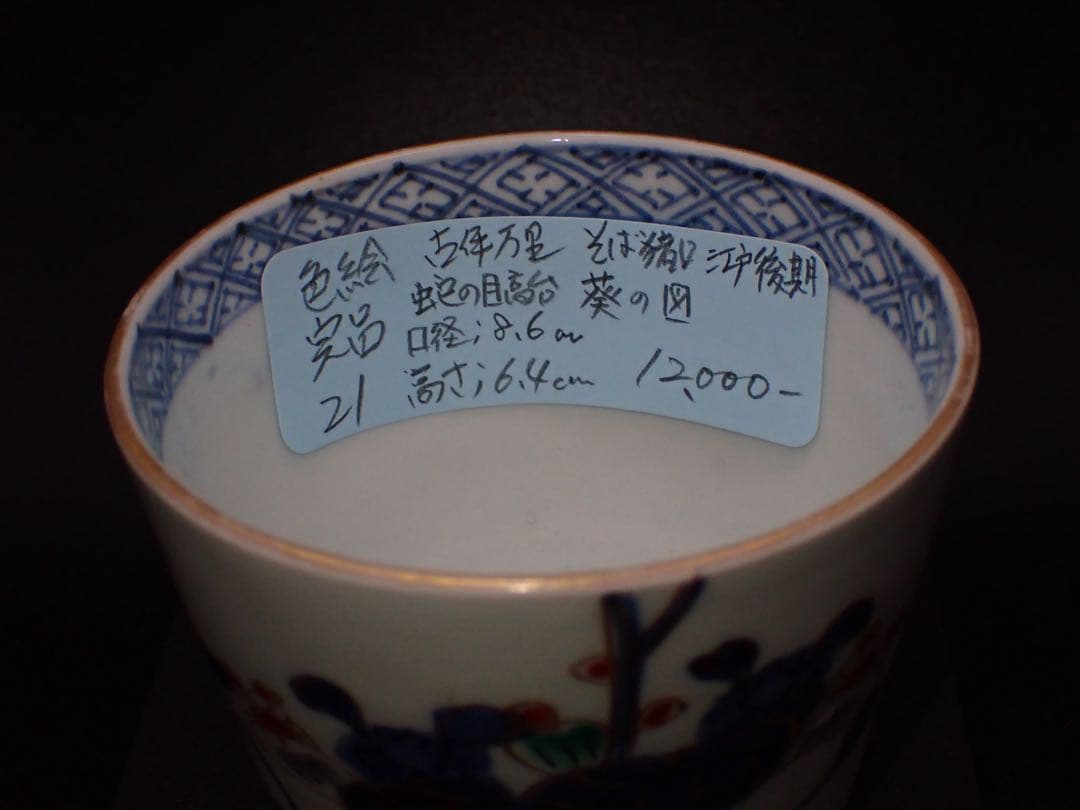 色絵 古伊万里 そば猪口 江戸後期
完品 蛇の目高台 葵の図
口径;8.6cm
21 高さ;6.4cm 12,000-